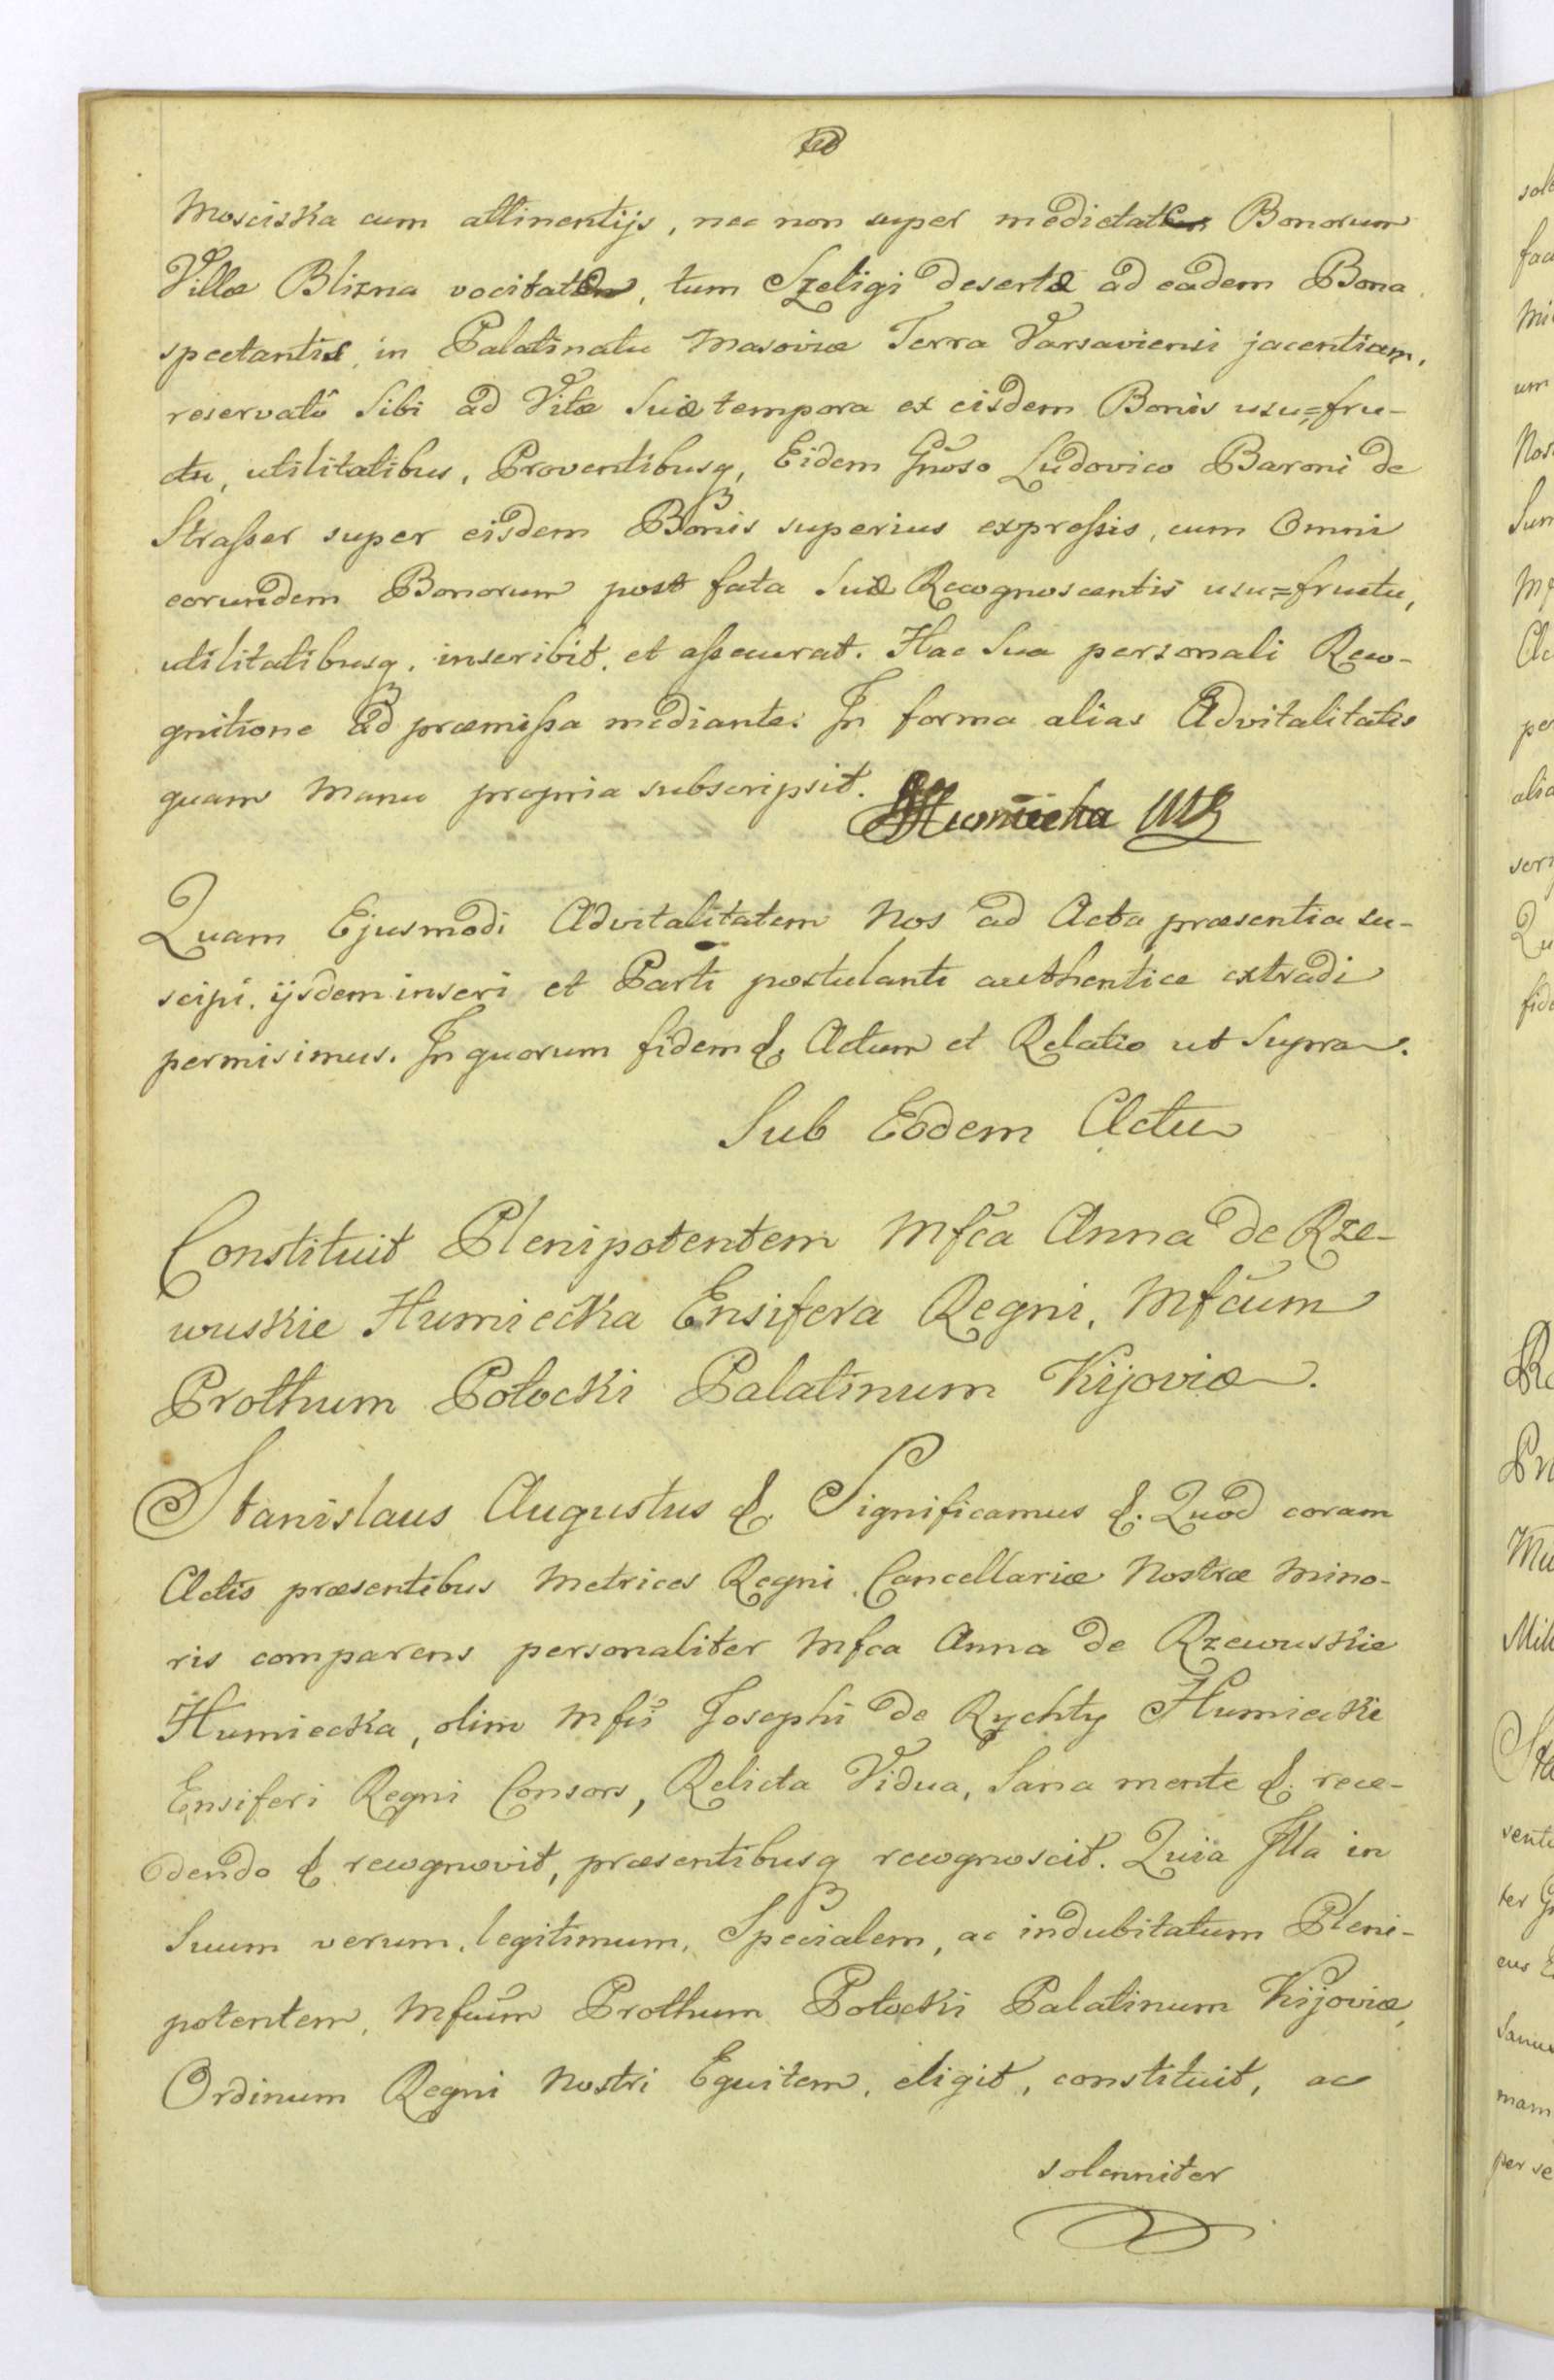 Mosciska cum attinentijs, nec non super medietate Bonorum
Villæ Blizna vocitatæ, tum Szeligi desertæ ad eadem Bona
spectantis, in Palatinatu Masoviæ Terra Varsaviensi jacentium,
reservatô Sibi ad Vitæ Suæ tempora ex eisdem Bonis usu=fru-
ctu, utilitatibus, Proventibusq, Eidem Gnoso Ludovico Baroni de
Straßer super eisdem Bonis superius expreßis, cum Omni
eorundem Bonorum post fata Suæ Recognoscentis usu=fructu,
utilitatibusq, inscribit, et aßecurat. Hac Sua personali Reco-
gnitione ad præmißa mediante. In forma alias Advitalitatis
quam Manu propria subscripsit. AHumiecka MK
Quam Ejusmodi Advitalitatem Nos ad Acta præsentia su-
scipi, ijsdem inseri et Parti postulanti authentice extradi
permisimus. In quorum fidem &. Actum et Relatio ut Supra.
Sub Eodem Actu
Constituit Plenipotentem Mfca Anna de Rze-
wuskie Humiecka Ensifera Regni, Mfcum
Prothum Potocki Palatinum Kijoviæ.
Stanislaus Augustus &. Significamus &. Quod coram
Actis præsentibus Metrices Regni Cancellariæ Nostræ Mino-
ris comparens personaliter Mfca Anna de Rzewuskie
Humiecka, olim Mfci Josephi de Rychty Humiecki
Ensiferi Regni Consors, Relicta Vidua, Sana mente &. rece-
dendo & recognovit, præsentibusq recognoscit. Quia Illa in
Suum verum, legitimum, Specialem, ac indubitatum Pleni-
potentem, Mfcum Prothum Potocki Palatinum Kijoviæ,
Ordinum Regni Nostri Equitem, eligit, constituit, ac
solenniter